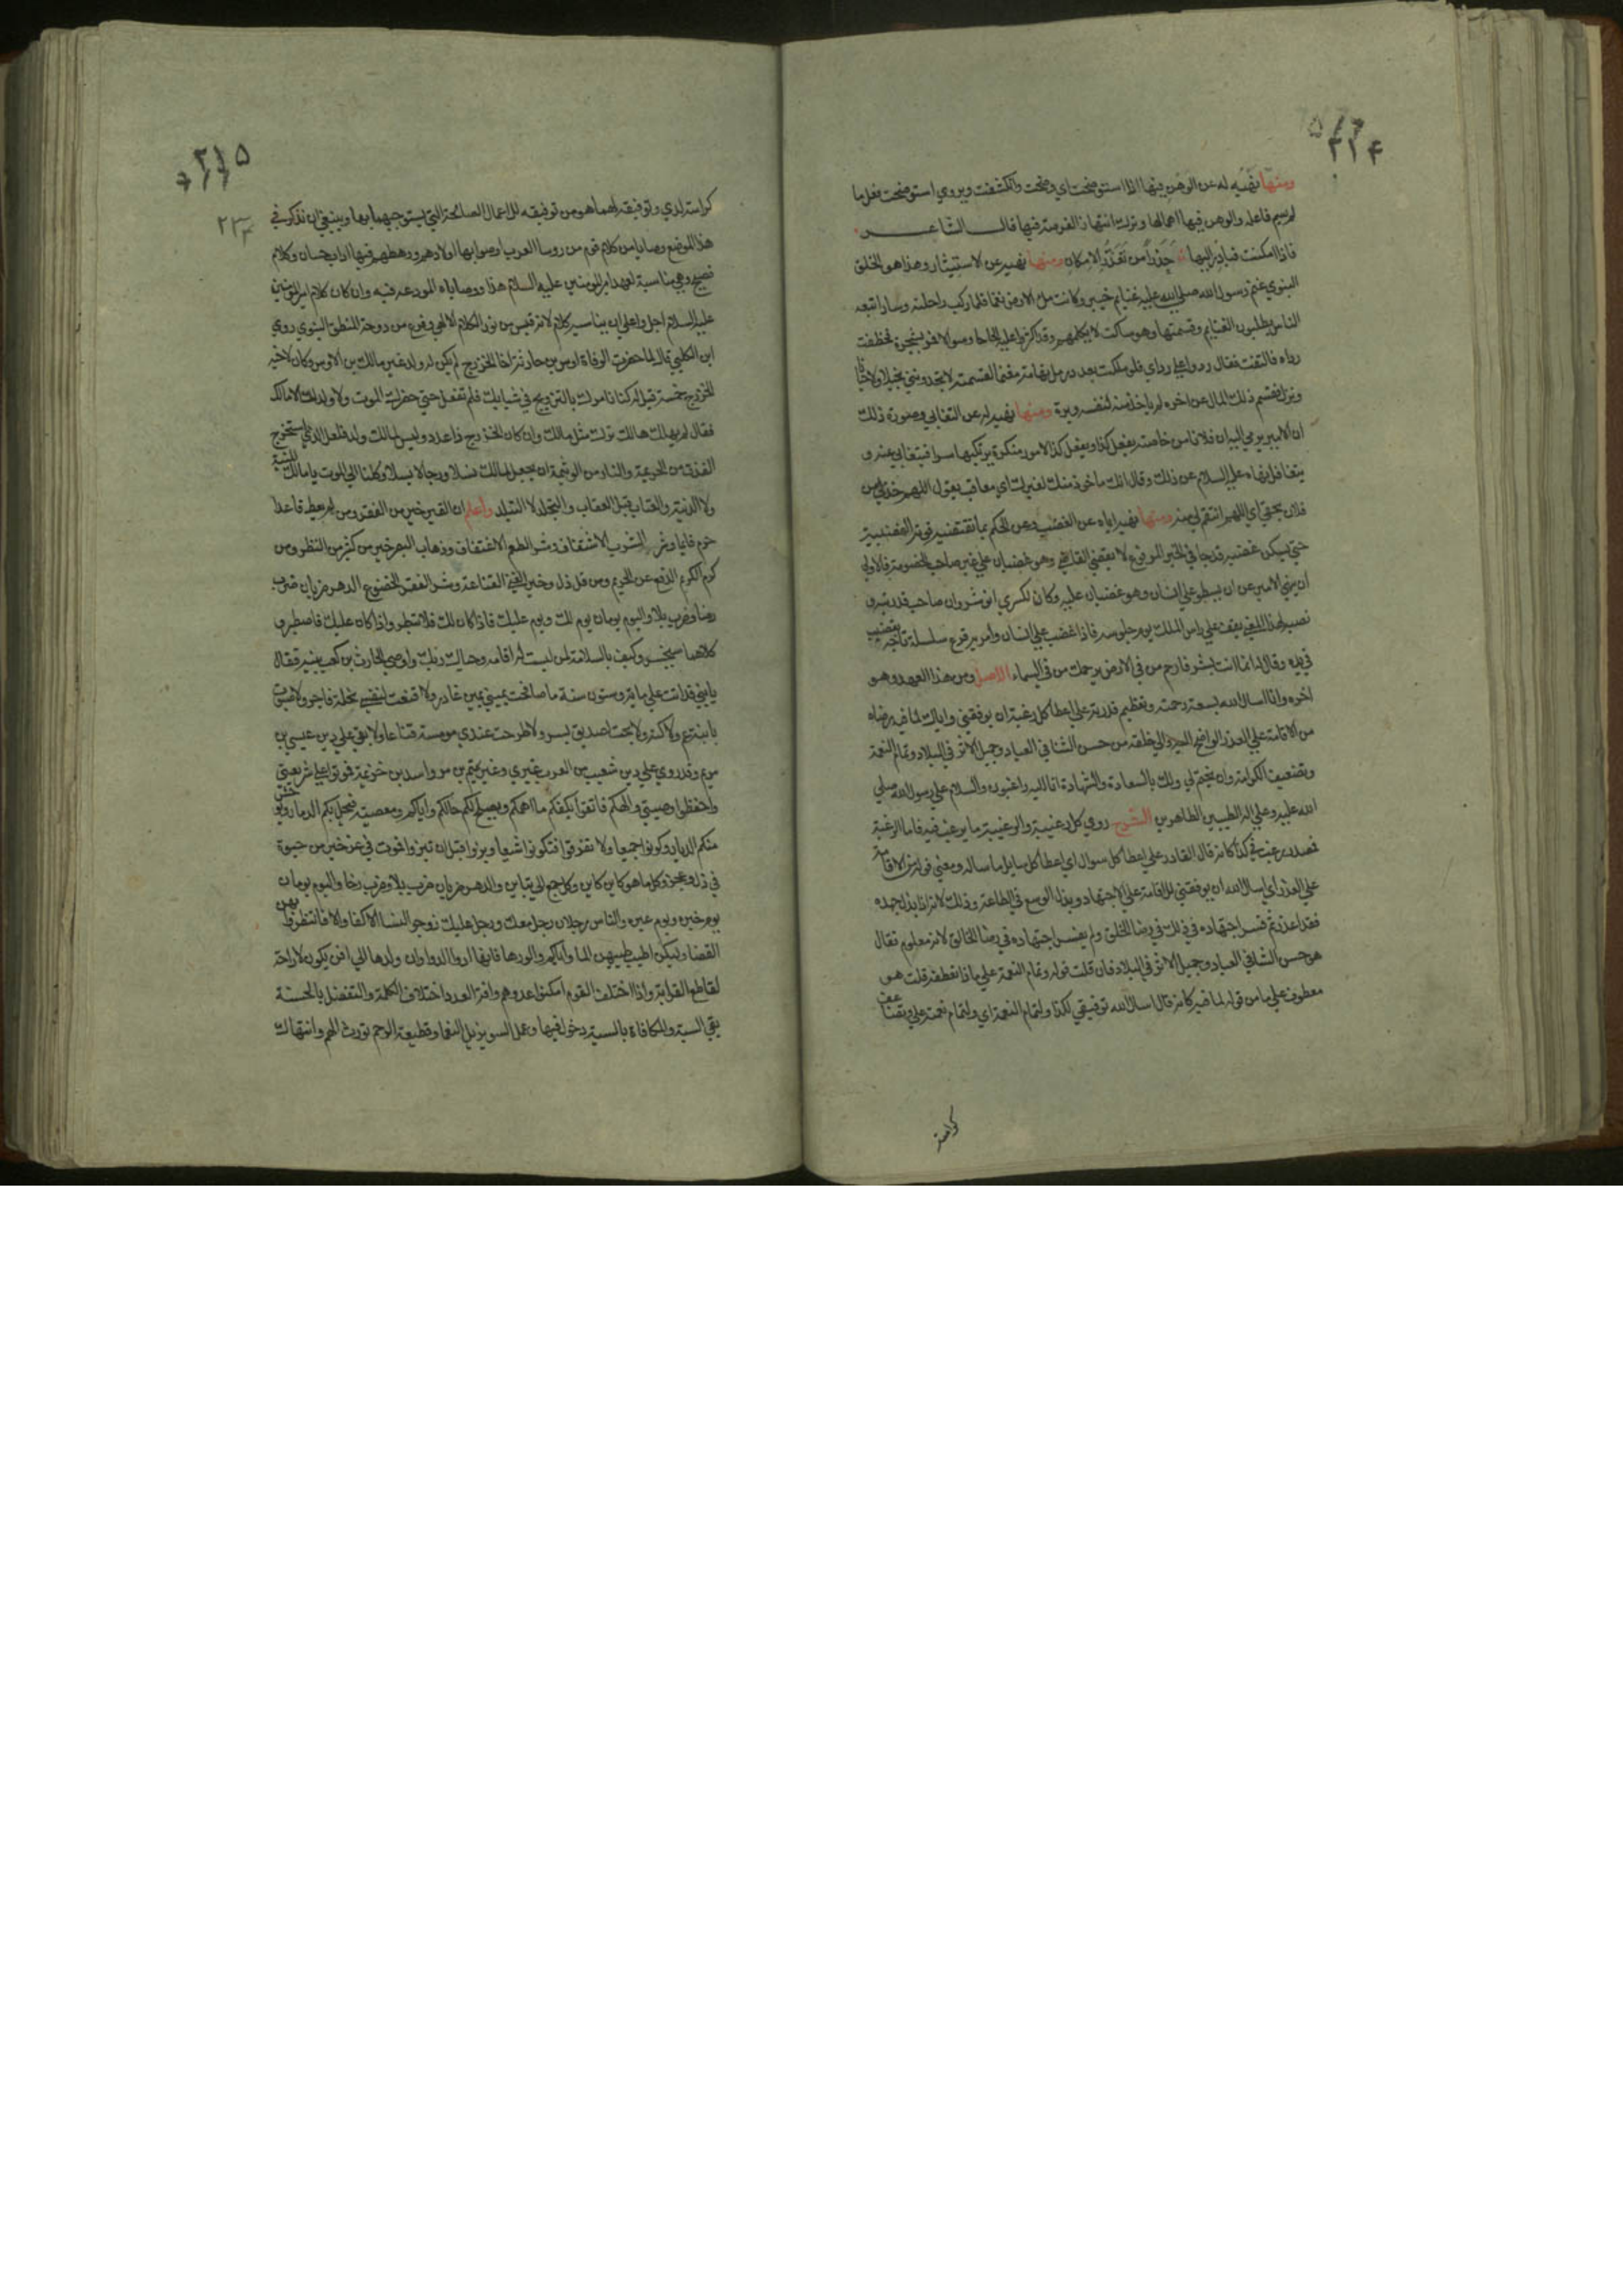 ٢١٤
ومنها نهيه له عن الوهن فيها اذا استوضحت اي وضحت وانكشفت ويروي استوضحت فعل ما
لم يسم فاعله والوهن فيها اهمالها وترك انتهاز الفرصة فيها قال الشاعر
فاذا امكنت فبادر اليها حذرا من تعذر الامكان ومنها نهيه عن الاستيثار وهذا هو الخلق
النبوي غنم رسول الله صلي الله عليه غنايم خيبر وكانت ملء الارض نعما فلما ركب راحلته وسار اتبعه
الناس يطلبون الغنايم وقسمتها وهو ساكت لا يكلمهم وقد اكثروا عليه الحاحا وسوالا فمر بشجرة فخطفت
رداه فالتفت فقال ردوا علي رداي فلو ملكت بعدد رمل تهامة مغنما لقسمته لا تجدونني بخيلا ولا جبانا
ونزل فقسم ذلك المال عن اخره لم ياخذ منه لنفسه وبرة ومنها نهيه له عن التغابي وصورة ذلك
ان الامير يومي اليه ان فلانا من خاصته يفعل كذا ويفعل كذا لامور منكرة يرتكبها سرا فيتغابي عنه و
يتغافل نهاه عليه السلام عن ذلك وقال انك ماخوذ منك لغيرك اي معاقب يقول اللهم خذ لي من
فلان بحقي اي اللهم انتقم لي منه ومنها نهيه اياه عن الغضب وعن الحكم بما تقتضيه قوته الغضبية
حتي يسكن غضبه قد جا في الخبر المرفوع لا يقضي القاضي وهو غضبان علي غير صاحب الخصومة فالاولي
ان ينهي الامير عن ان يسطو علي انسان وهو غضبان عليه وكان لكسري انوشروان صاحب قد رتبه و
نصبه لهذا المعني يقف علي راس الملك يوم جلوسه فاذا غضب علي انسان وامر به قرع سلسلة تاجه بقضيب
في يده وقال له انما انت بشر فارحم من في الارض يرحمك من في السماء الاصل ومن هذا العهد وهو
اخره وانا اسال الله بسعة رحمته وعظيم قدرته علي اعطا كل رغبة ان يوفقني واياك لما فيه رضاه
من الاقامة علي العذر الواضح اليه والي خلقه من حسن الثنا في العباد وجميل الاثر في البلاد وتمام النعمة
وتضعيف الكرامة وان يختم لي ولك بالسعادة والشهادة انا اليه راغبون والسلام علي رسول الله صلي
الله عليه وعلي اله الطيبين الطاهرين الشرح روي كل رغيبة والرغيبة ما يرغب فيه فاما الرغبة
فمصدر رغب في كذا كانه قال القادر علي اعطا كل سوال اي اعطا كل سايل ما ساله ومعني قوله من الاقامة
علي العذر اي اسال الله ان يوفقني للاقامة علي الاجتهاد وبذل الوسع في الطاعة وذلك لانه اذا بذل جهده
فقد اعذر ثم فسر اجتهاده في ذلك في رضا الخلق ولم يفسر اجتهاده في رضا الخالق لانه معلوم فقال
هو حسن الثنا في العباد وجميل الاثر في البلاد فان قلت فقوله وتمام النعمة علي ماذا تعطفه قلت هو
معطوف علي ما من قوله لما فيه كانه قال اسال الله توفيقي لكذا ولتمام النعمة اي ولتمام نعمته علي وتضاعف
كرامته
٢١٥
٢٣٤
كرامته لدي وتوفيقه لهما هو من توفيقه للاعمال الصالحة التي يستوجبهما بها وينبغي ان نذكر في
هذا الموضع وصايا من كلام قوم من روسا العرب اوصوا بها اولادهم ورهطهم فيها اداب حسان وكلام
فصيح وهي مناسبة لعهد امير المومنين عليه السلام هذا ووصاياه المودعة فيه وان كان كلام امير المومنين
عليه السلام اجل واعلي ان يناسبه كلام لانه قبس من نور الكلام الالهي وفرع من دوحة المنطق النبوي روي
ابن الكلبي قال لما حضرت الوفاة اوس بن حارثة اخا الخزرج لم يكن له ولد غير مالك بن الاوس وكان لاخيه
الخزرج خمسة قيل له كنا نامرك بالتزويج في شبابك فلم تفعل حتي حضرك الموت ولا ولد لك الا مالك
فقال لم يهلك هالك ترك مثل مالك وان كان الخزرج ذا عدد وليس لمالك ولد فلعل الذي استخرج
العذق من الجريمة والنار من الوثيمة ان يجعل لمالك نسلا ورجالا بسلا وكلنا الي الموت يا مالك المنية
ولا الدنية والعتاب قبل العقاب والتجلد لا التبلد واعلم ان القبر خير من الفقر ومن لم يعط قاعدا
حرم قايما وشر الشرب الاشتفاف وشر الطعم الاقتفاف وذهاب البصر خير من كثير من النظر ومن
كرم الكريم الدفع عن الحريم ومن قل ذل وخير الغني القناعة وشر الفقر الخضوع الدهر ضربان ضرب
رخا وضرب بلا واليوم يومان يوم لك ويوم عليك فاذا كان لك فلا تبطر واذا كان عليك فاصطبر و
كلاهما سينحسر وكيف بالسلامة لمن ليست له اقامة وحياك ربك واوصي الحارث بن كعب بنيه فقال
يابني قد اتت علي ماية وستون سنة ما صافحت يميني يمين غادر ولا قنعت لنفسي بخلة فاجر ولا صبوت
بابنة عم ولا كنة ولا بحت لصديق بسر ولا طرحت عندي مومسة قناعا ولا بقي علي دين عيسي بن
مريم وقد روي علي دين شعيب من العرب غيري وغير تميم بن مر واسد بن خزيمة فموتوا علي شريعتي
واحفظوا وصيتي والهكم فاتقوا يكفكم ما اهمكم ويصلح لكم حالكم واياكم ومعصيته فيحل بكم الدمار ويوحش
منكم الديار وكونوا جميعا ولا تفرقوا فتكونوا شيعا وبزوا قبل ان تبزوا فموت في عز خير من حيوة
في ذل وعجز وكل ما هو كاين كاين وكل جمع الي تباين والدهر ضربان ضرب بلا وضرب رخا واليوم يومان
يوم حبرة ويوم عبرة والناس رجلان رجل معك ورجل عليك زوجوا النسا الاكفا والا فانتظروا بهن
القضا وليكن اطيب طيبهن الما واياكم والورها فانها ادوا الدوا وان ولدها الي افن يكون لا راحة
لقاطع القرابة واذا اختلف القوم امكنوا عدوهم وافة العدد اختلاف الكلمة والتفضل بالحسنة
يقي السية والمكافاة بالسية دخول فيها وعمل السو يزيل النعما وقطيعة الرحم تورث الهم وانتهاك